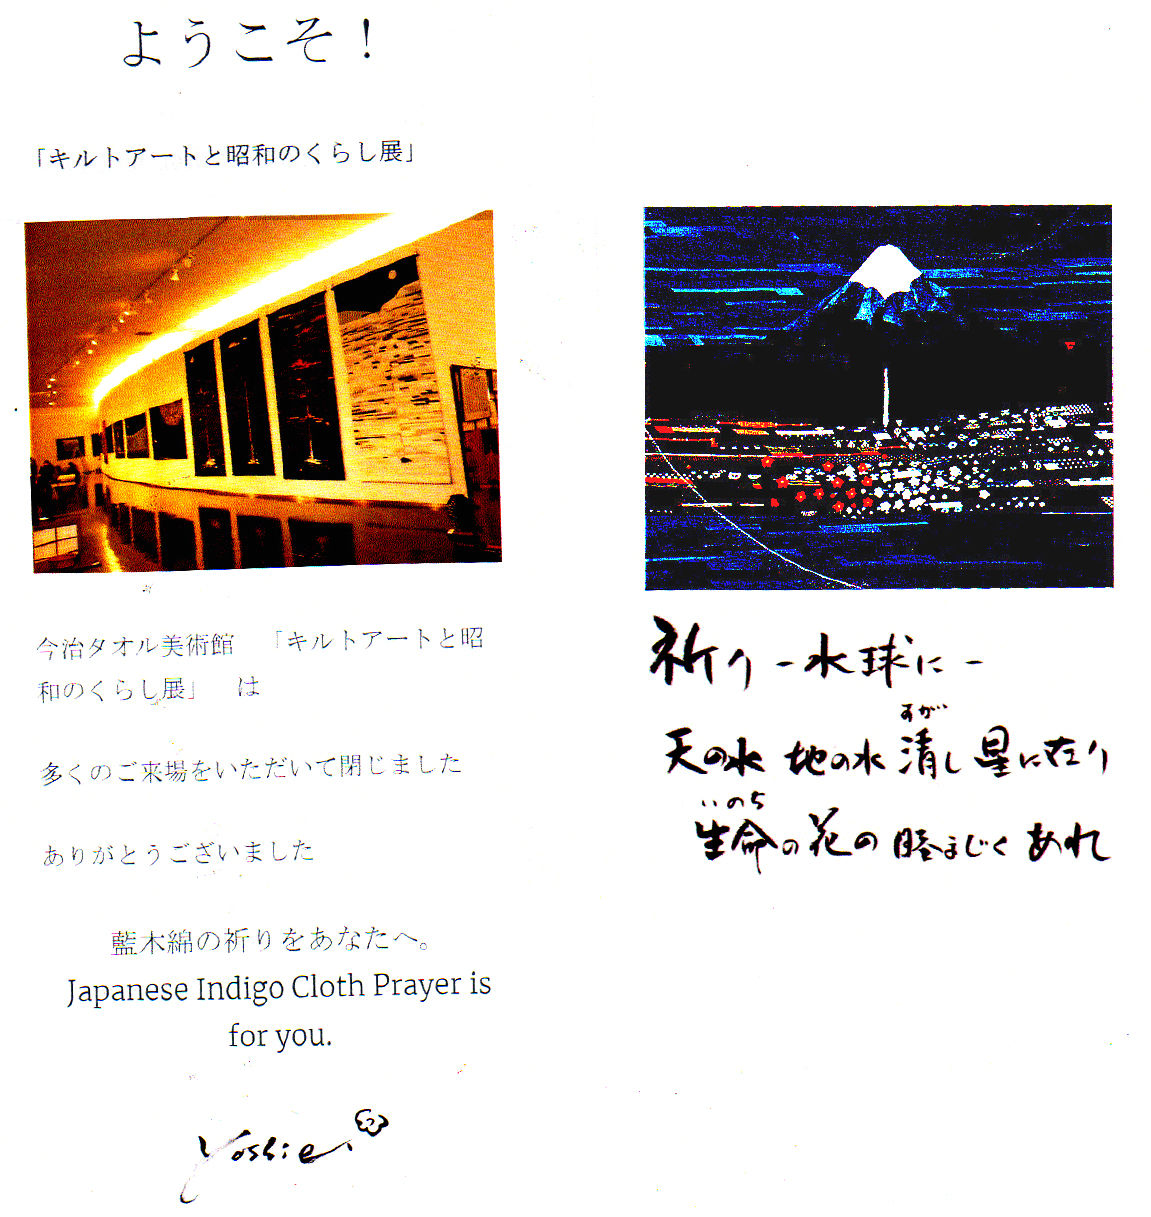 ようこそ!
「キルトアートと昭和のくらし展」
今治タオル美術館 「キルトアートと昭
和のくらし展」 は
多くのご来場をいただいて閉じました
ありがとうございました
藍木綿の祈りをあなたへ。
Japanese Indigo Cloth Prayer is
for you.
Yoshie.
祈り - 水球に -
すが
天の水 地の水 清し 星に在り
いのち
生命の花の 睦まじく あれ